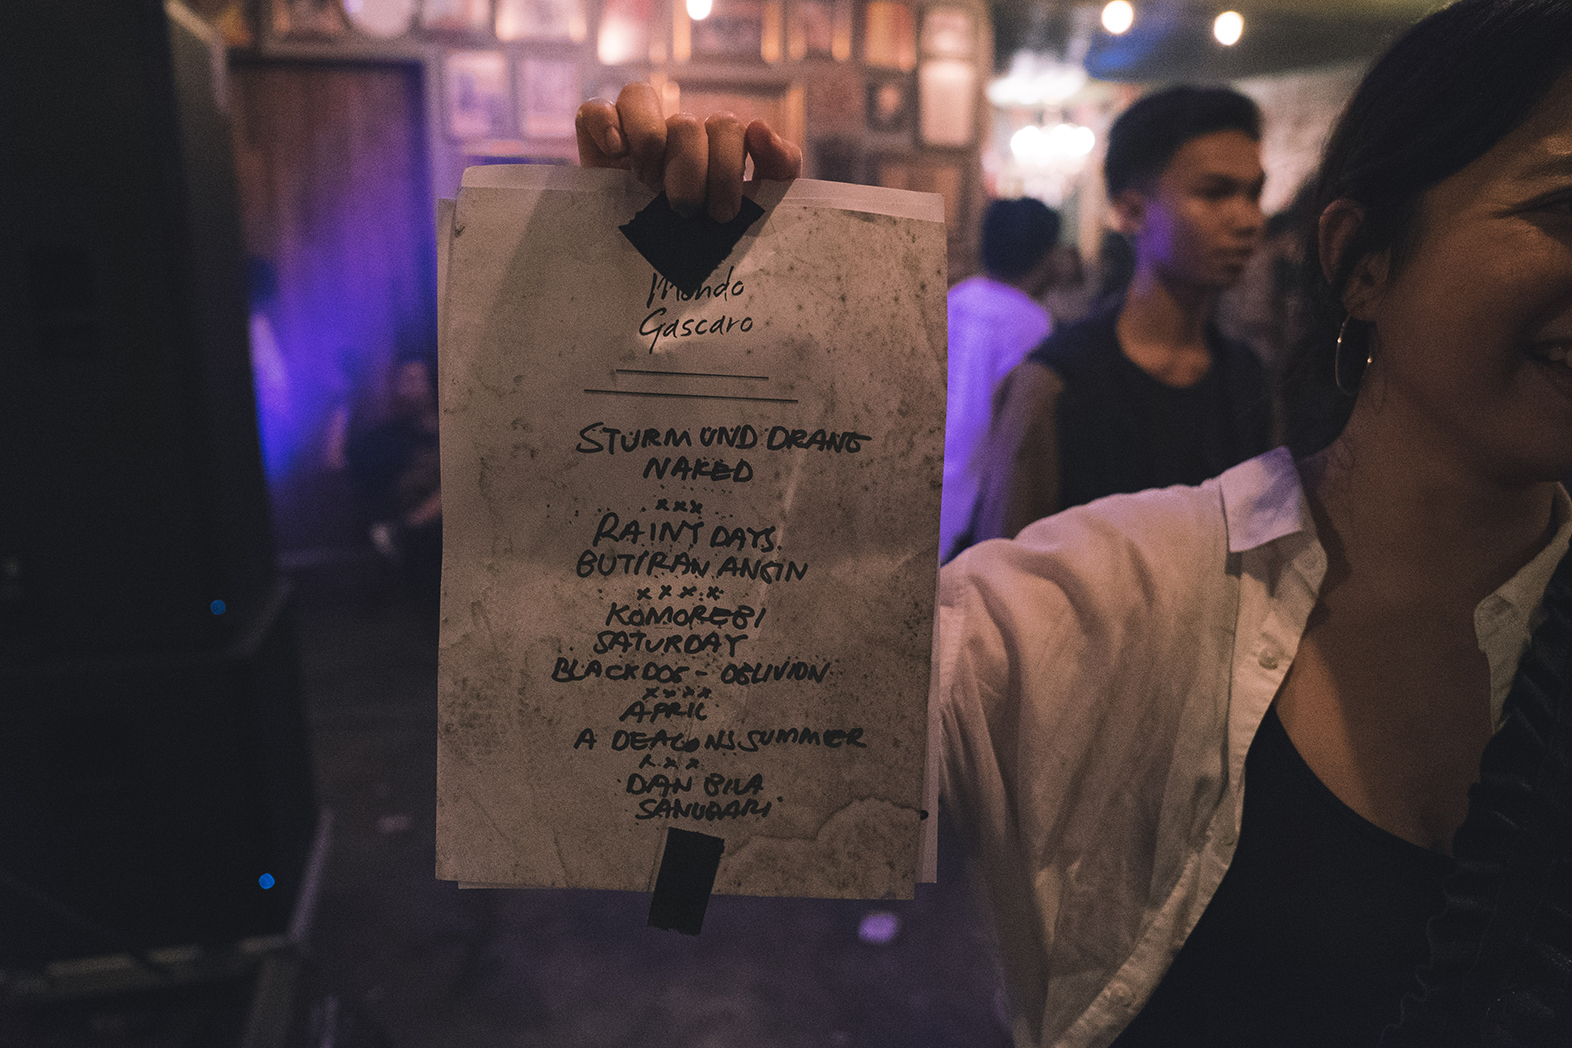 Mondo
Gascaro
STURM UND DRANG
NAKED
xxx
RAINY DAYS.
BUTIRAN ANGIN
xxxx
KOMOREBI
SATURDAY
BLACKDOG - OBLIVION
xxxx
APRIL
A DEACONS SUMMER
xxx
DAN BILA
SANUBARI